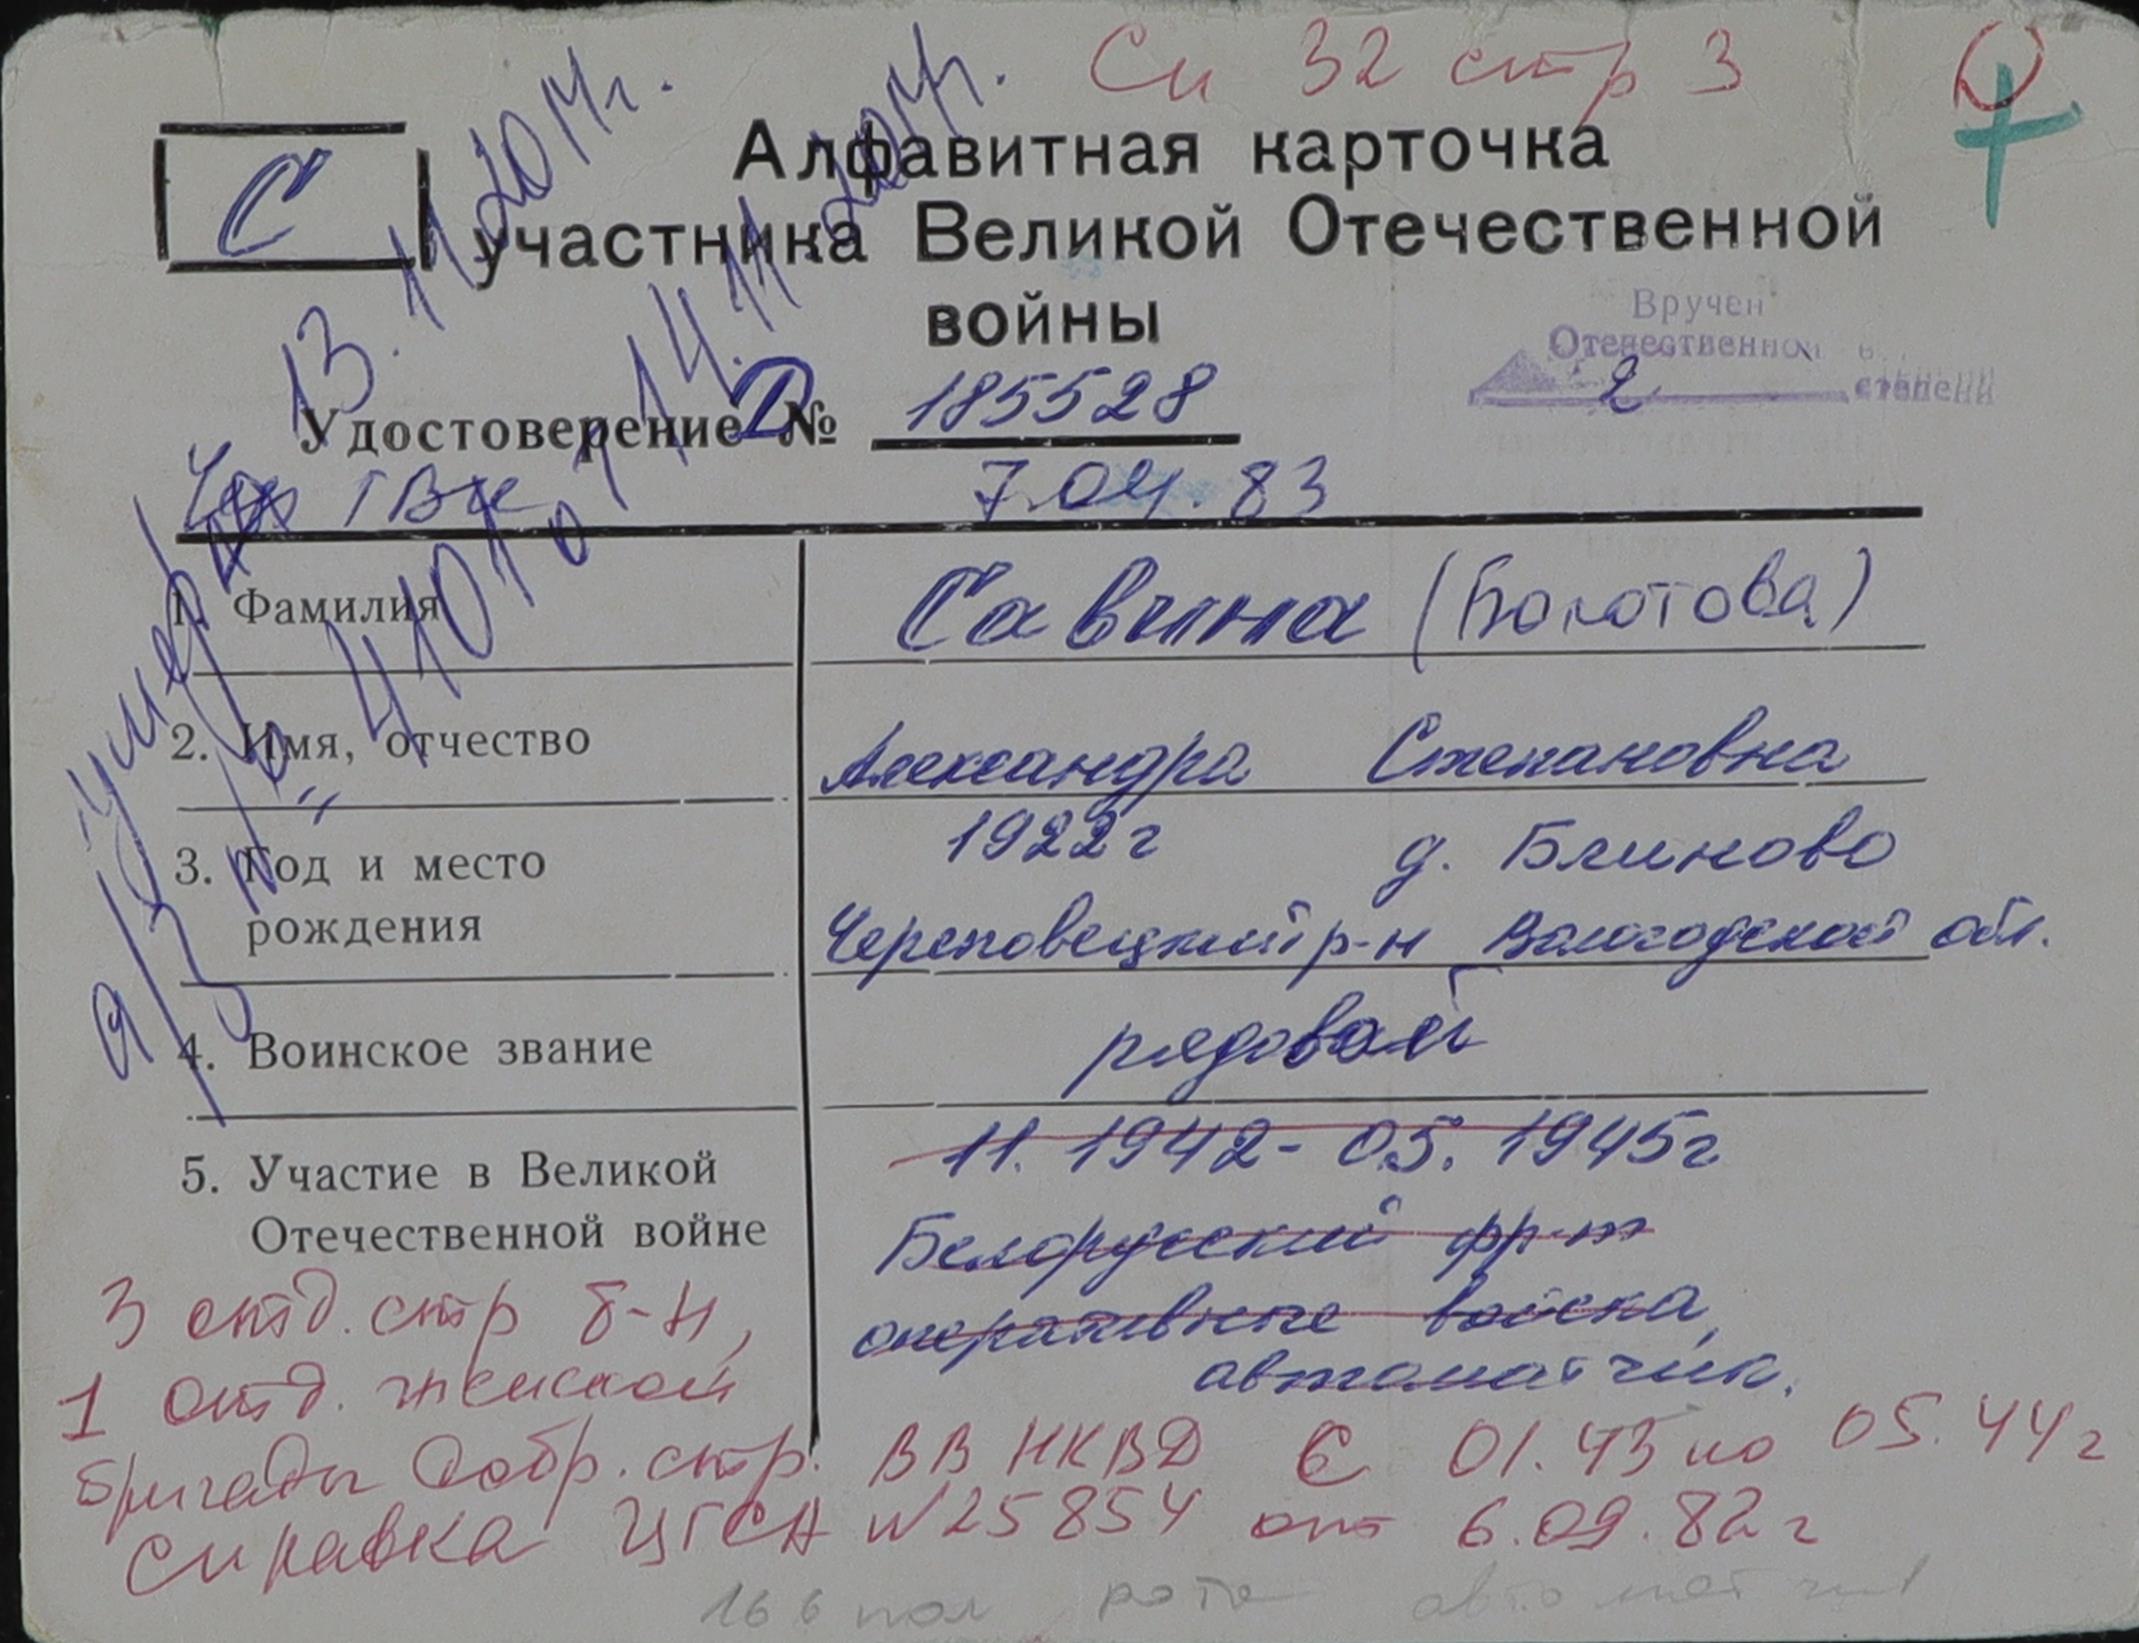 Сп 32 стр 3
С
Алфавитная карточка
участника Великой Отечественной
войны
Вручен
Отечественной
2 степени
Удостоверение Д № 185528
ГВК 7.04.83
1. Фамилия Савина (Болотова)
2. Имя, отчество Александра Степановна
3. Год и место рождения 1922 г д. Блиново
Череповецкий р-н Вологодской обл.
4. Воинское звание рядовой
5. Участие в Великой Отечественной войне 11. 1942 - 05. 1945 г
Белорусский фр-т
оперативные войска,
автоматчик.
3 отд. стр б-н,
1 отд. женской
бригады добр. стр. ВВ НКВД с 01.43 по 05.44 г
справка ЦГСА №25854 от 6.09.82 г
166 пол рота автоматчик
умер
13.11.2014г.
а/з № 4101 от 14.11.2014г.